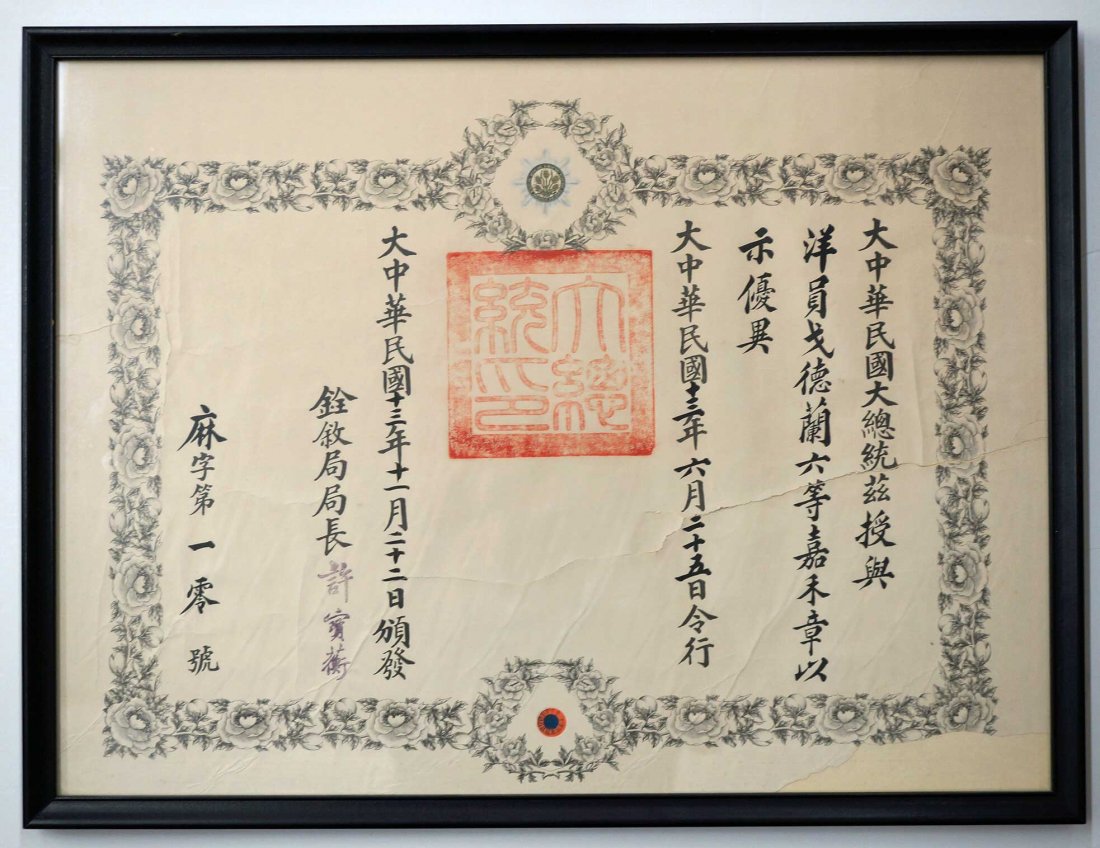 大中華民國大總統茲授與
洋員戈德蘭六等嘉禾章以
示優異
大中華民國十三年六月二十五日令行
大總統印
大中華民國十三年十一月二十二日頒發
銓敘局局長許寶蘅
麻字第一零號